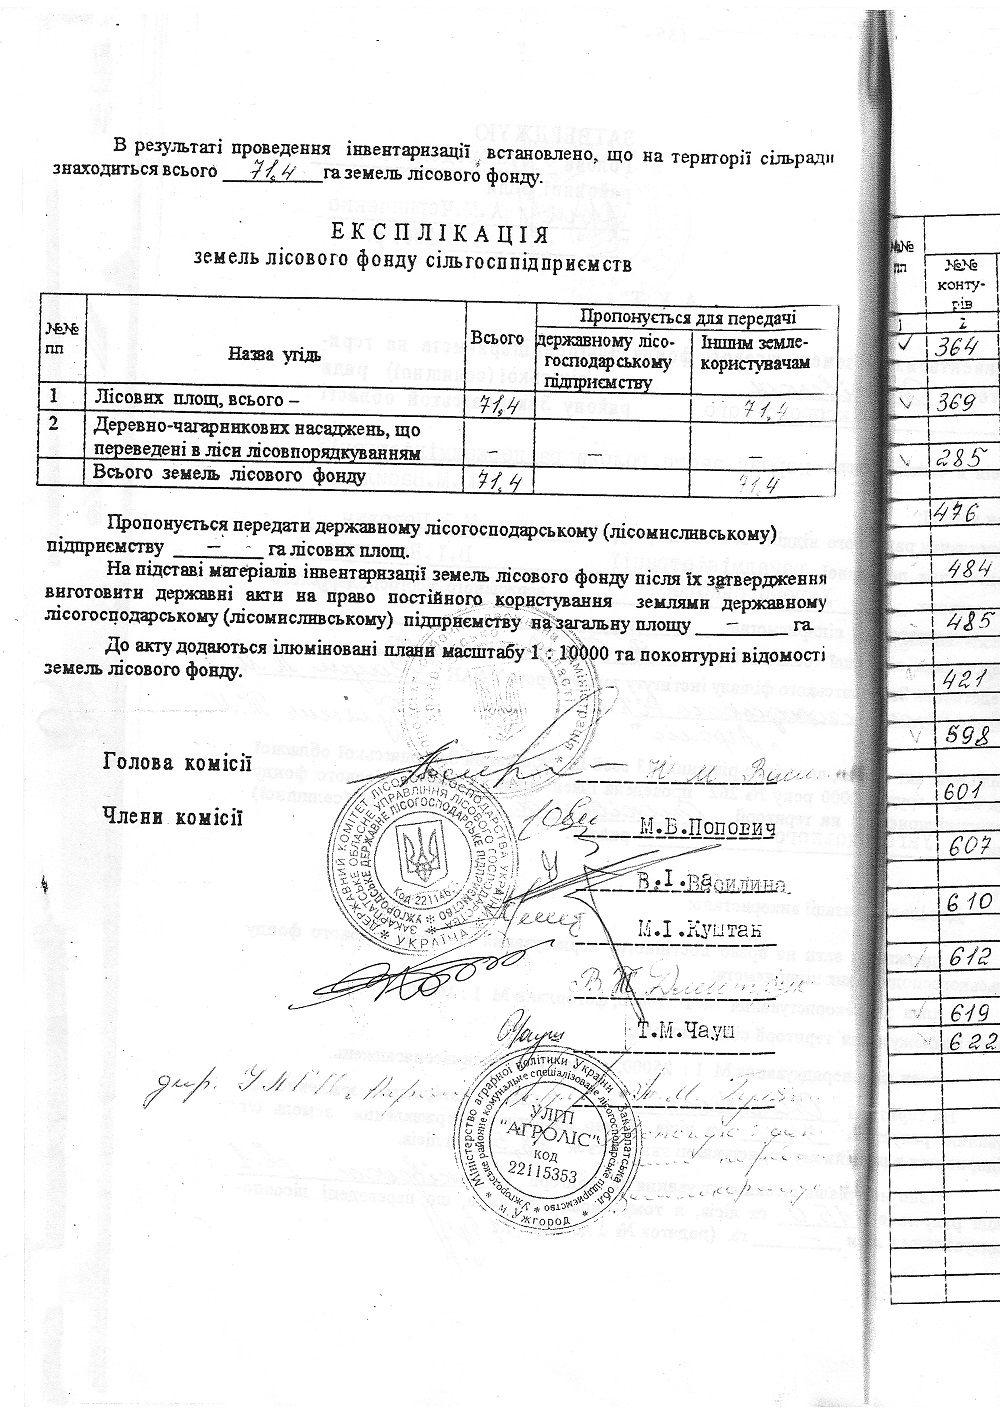 В результаті проведення інвентаризації встановлено, що на території сільради
знаходиться всього 71,4 га земель лісового фонду.
ЕКСПЛІКАЦІЯ
земель лісового фонду сільгосппідприємств
№№ пп
Назва угідь
Всього
Пропонується для передачі
державному лісо-
господарському
підприємству
Іншим земле-
користувачам
1 Лісових площ, всього – 71,4 71,4
2 Деревно-чагарникових насаджень, що
переведені в ліси лісовпорядкуванням – – –
Всього земель лісового фонду 71,4 71,4
Пропонується передати державному лісогосподарському (лісомисливському)
підприємству – га лісових площ.
На підставі матеріалів інвентаризації земель лісового фонду після їх затвердження
виготовити державні акти на право постійного користування землями державному
лісогосподарському (лісомисливському) підприємству на загальну площу – га.
До акту додаються ілюміновані плани масштабу 1 : 10000 та поконтурні відомості
земель лісового фонду.
Голова комісії
Члени комісії
М.В.Попович
В.І.Василина
М.І.Куштак
Т.М.Чауш
ДЕРЖАВНИЙ КОМІТЕТ ЛІСОВОГО ГОСПОДАРСТВА УКРАЇНИ
ЗАКАРПАТСЬКЕ ОБЛАСНЕ УПРАВЛІННЯ ЛІСОВОГО ГОСПОДАРСТВА
УЖГОРОДСЬКЕ ДЕРЖАВНЕ ЛІСОГОСПОДАРСЬКЕ ПІДПРИЄМСТВО
УКРАЇНА
Міністерство аграрної політики України Закарпатська обл.
Ужгородське районне комунальне спеціалізоване лісогосподарське підприємство
м.Ужгород
УЛГП
"АГРОЛІС"
код
22115353
№№
пп
№№
конту-
рів
1 2
364
369
285
476
484
485
421
598
601
607
610
612
619
622